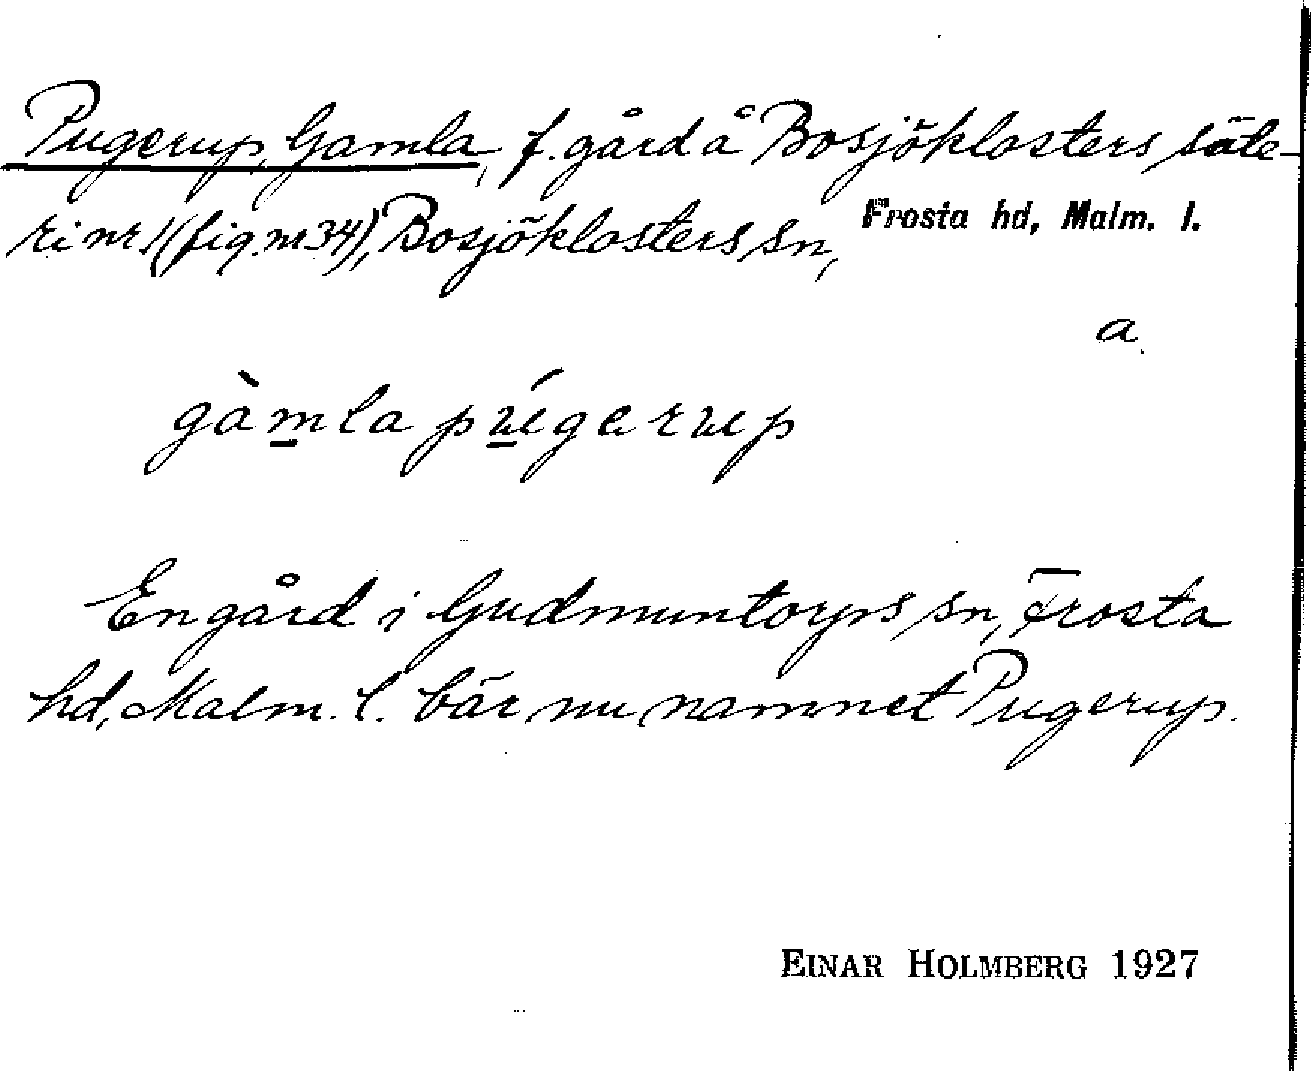 Pugerup, Gamla, f. gård å Bosjöklosters säte-
ri nr 1 (fig. nr 34), Bosjöklosters sn, Frosta hd, Malm. l.
a.
gàm̲la pú̲gerup
En gård i Gudmuntorps sn, Frosta
hd, Malm. l. bär nu namnet Pugerup.
EINAR HOLMBERG 1927